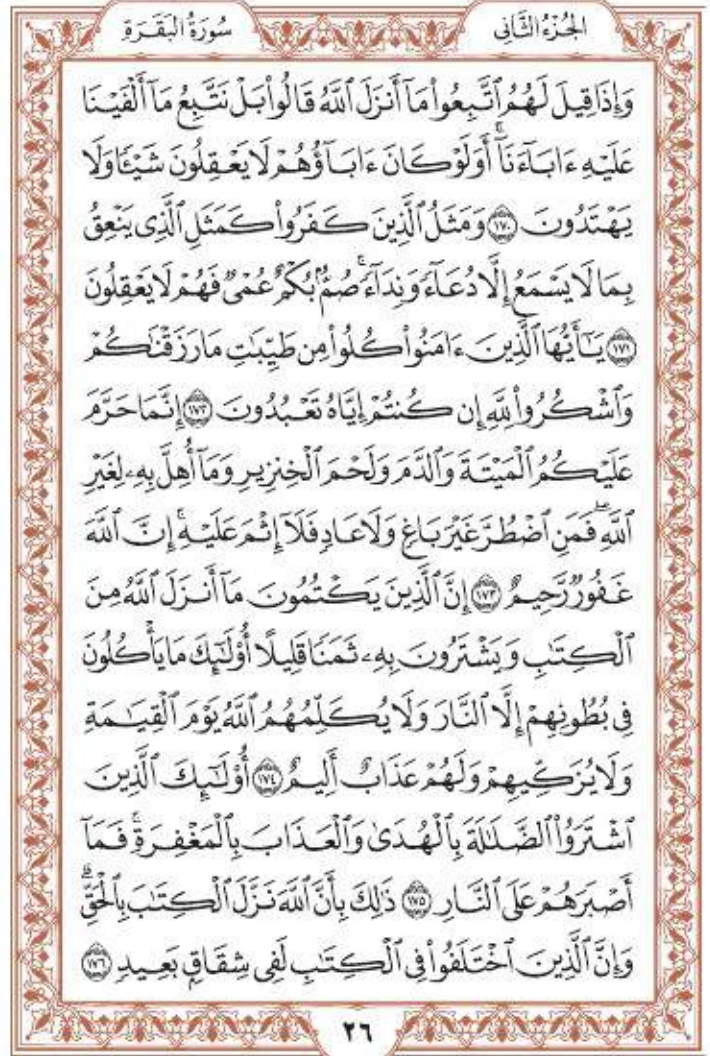 الجُزْءُ الثَّانِي
سُورَةُ البَقَرَةِ
وَإِذَا قِيلَ لَهُمُ ٱتَّبِعُواْ مَآ أَنزَلَ ٱللَّهُ قَالُواْ بَلْ نَتَّبِعُ مَآ أَلْفَيْنَا
عَلَيْهِ ءَابَآءَنَآۚ أَوَلَوْ كَانَ ءَابَآؤُهُمْ لَا يَعْقِلُونَ شَيْـًٔا وَلَا
يَهْتَدُونَ ١٧٠ وَمَثَلُ ٱلَّذِينَ كَفَرُواْ كَمَثَلِ ٱلَّذِى يَنْعِقُ
بِمَا لَا يَسْمَعُ إِلَّا دُعَآءً وَنِدَآءًۚ صُمٌّۢ بُكْمٌ عُمْىٌ فَهُمْ لَا يَعْقِلُونَ
١٧١ يَـٰٓأَيُّهَا ٱلَّذِينَ ءَامَنُواْ كُلُواْ مِن طَيِّبَـٰتِ مَا رَزَقْنَـٰكُمْ
وَٱشْكُرُواْ لِلَّهِ إِن كُنتُمْ إِيَّاهُ تَعْبُدُونَ ١٧٢ إِنَّمَا حَرَّمَ
عَلَيْكُمُ ٱلْمَيْتَةَ وَٱلدَّمَ وَلَحْمَ ٱلْخِنزِيرِ وَمَآ أُهِلَّ بِهِۦ لِغَيْرِ
ٱللَّهِۖ فَمَنِ ٱضْطُرَّ غَيْرَ بَاغٍ وَلَا عَادٍ فَلَآ إِثْمَ عَلَيْهِۚ إِنَّ ٱللَّهَ
غَفُورٌ رَّحِيمٌ ١٧٣ إِنَّ ٱلَّذِينَ يَكْتُمُونَ مَآ أَنزَلَ ٱللَّهُ مِنَ
ٱلْكِتَـٰبِ وَيَشْتَرُونَ بِهِۦ ثَمَنًا قَلِيلًا أُوْلَـٰٓئِكَ مَا يَأْكُلُونَ
فِى بُطُونِهِمْ إِلَّا ٱلنَّارَ وَلَا يُكَلِّمُهُمُ ٱللَّهُ يَوْمَ ٱلْقِيَـٰمَةِ
وَلَا يُزَكِّيهِمْ وَلَهُمْ عَذَابٌ أَلِيمٌ ١٧٤ أُوْلَـٰٓئِكَ ٱلَّذِينَ
ٱشْتَرَوُاْ ٱلضَّلَـٰلَةَ بِٱلْهُدَىٰ وَٱلْعَذَابَ بِٱلْمَغْفِرَةِۚ فَمَآ
أَصْبَرَهُمْ عَلَى ٱلنَّارِ ١٧٥ ذَٰلِكَ بِأَنَّ ٱللَّهَ نَزَّلَ ٱلْكِتَـٰبَ بِٱلْحَقِّۗ
وَإِنَّ ٱلَّذِينَ ٱخْتَلَفُواْ فِى ٱلْكِتَـٰبِ لَفِى شِقَاقٍۭ بَعِيدٍ ١٧٦
٢٦